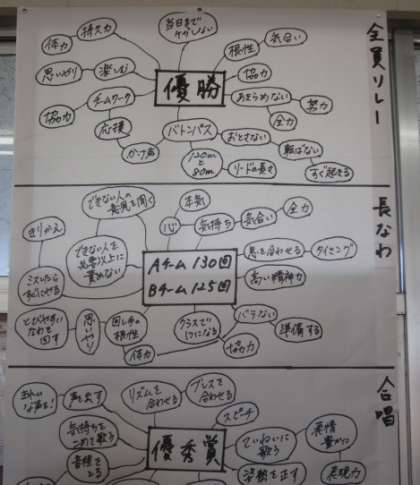 全員リレー
優勝
当日までケガしない
持久力
体力
思いやり
楽しむ
チームワーク
協力
応援
かけ声
根性
気合い
協力
あきらめない
努力
全力
バトンパス
120mと80m
リードの長さ
おとさない
転ばない
すぐ起きる
長なわ
Aチーム 130回
Bチーム 125回
できない人の意見を聞く
できない人を必要以上に責めない
きりかえ
ミスしたらすぐにやる
本気
心
気持ち
気合い
全力
息を合わせる
タイミング
高い精神力
とびやすいなわを回す
思いやり
回し手の根性
体力
クラスで1つになる
協力
バラない
準備する
合唱
優秀賞
きれいな声を!
声を出す
リズムを合わせる
ブレスを合わせる
スピーチ
気持ちをこめて歌う
音程をとる
ていねいに歌う
表情豊かに
表現力
姿勢を正す